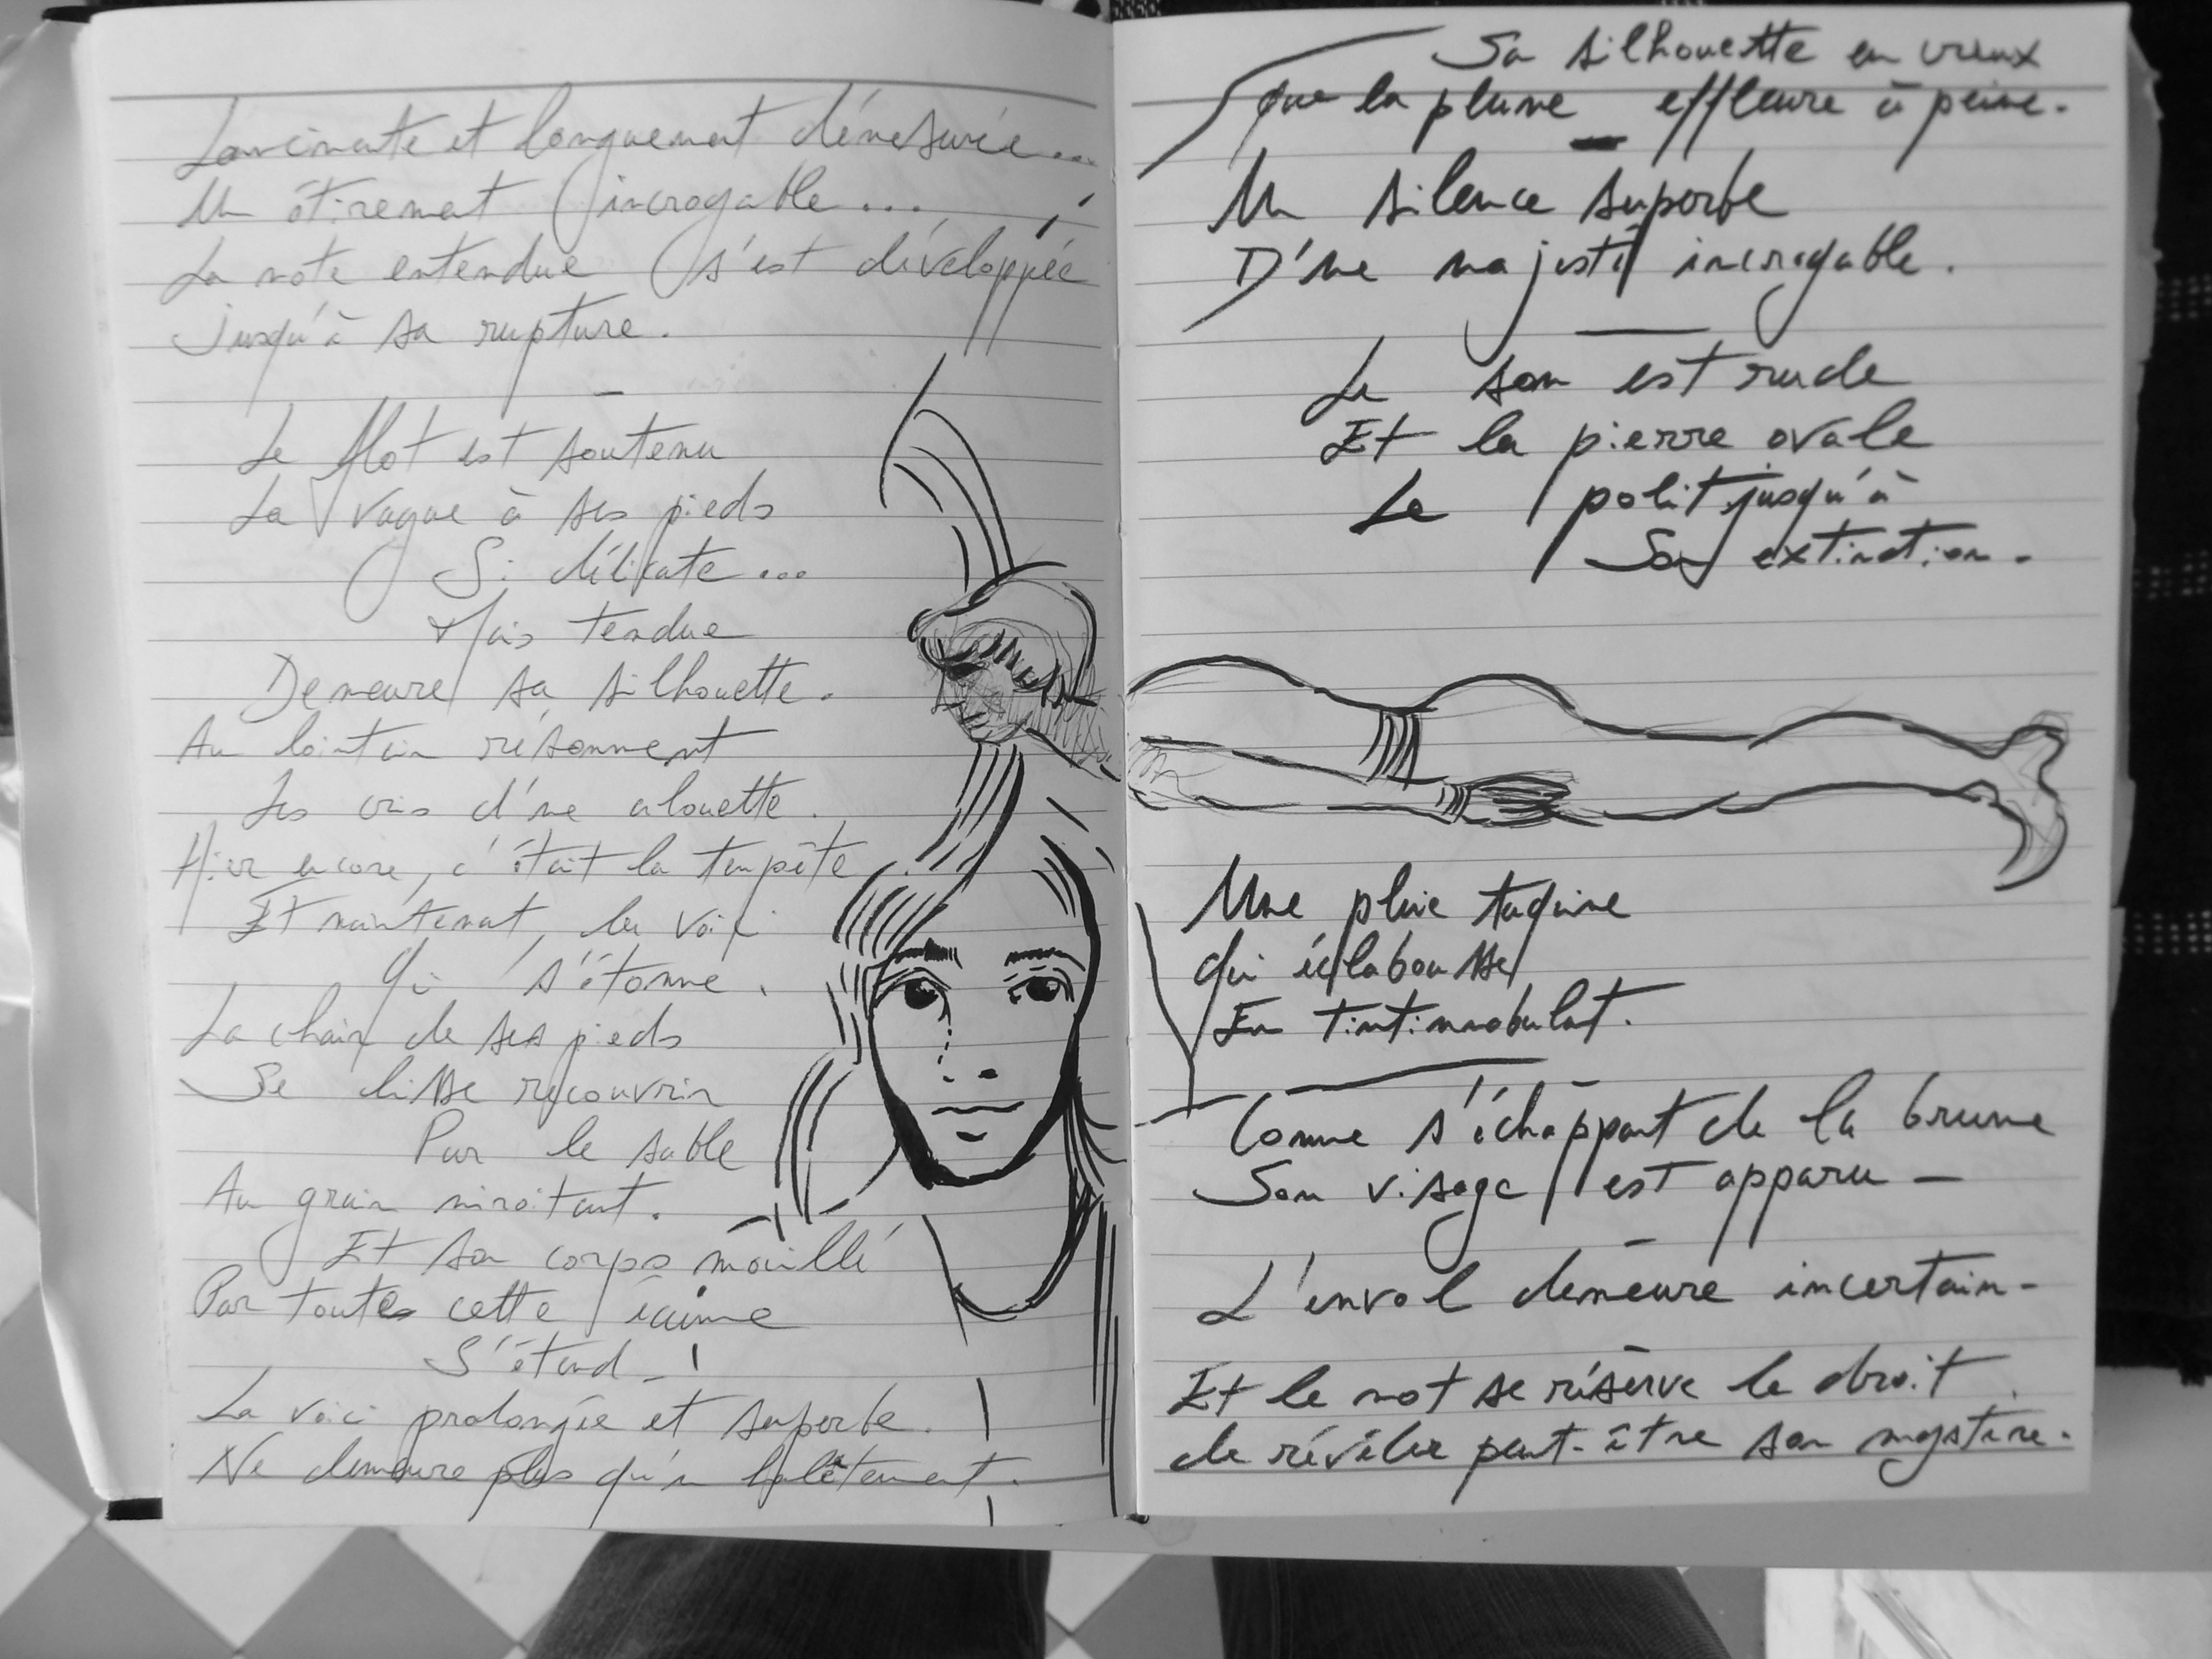 Lancinante et longuement démesurée...
Un étirement incroyable...
La note entendue s'est développée
jusqu'à sa rupture.
Le flot est soutenu
La vague à ses pieds
Si délicate...
Mais tendue
Demeure sa silhouette.
Au lointain résonnent
Les cris d'une alouette.
Hier encore, c'était la tempête
Et maintenant, la voix
Qui s'étonne.
La chair de ses pieds
Se laisse recouvrir
Par le sable
Au grain miroitant.
Et son corps mouillé
Par toutes cette écume
S'étend_!
La voici prolongée et superbe.
Ne demeure plus qu'un halètement.
Sa silhouette en creux
Que la plume effleure à peine.
Un silence superbe
D'une majesté incroyable.
Le son est rude
Et la pierre ovale
Le polit jusqu'à
Son extinction.
Une pluie taquine
Qui éclabousse
En tintinnabulant.
Comme s'échappant de la brume
Son visage est apparu -
L'envol demeure incertain-
Et le mot se réserve le droit
de révéler peut-être son mystère.